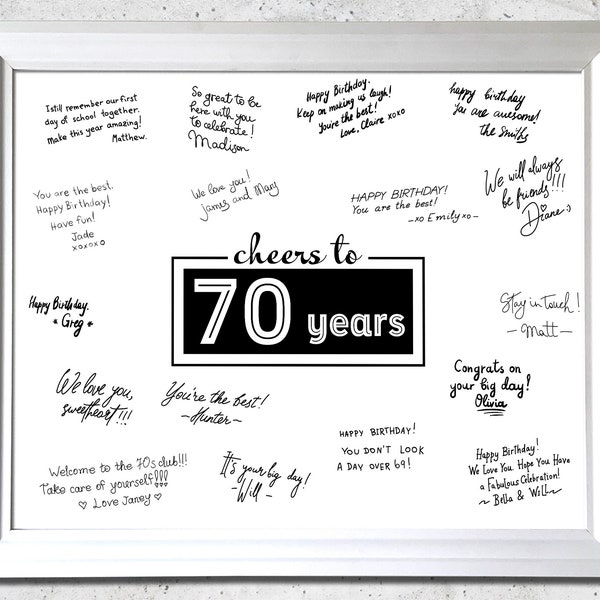 I still remember our first
day of school together.
Make this year amazing!
Matthew.
So great to be
here with you
to celebrate!
Madison
Happy Birthday.
Keep on making us laugh!
You're the best!
Love, Claire xoxo
happy birthday
You are awesome!
The Smiths
You are the best.
Happy Birthday!
Have fun!
Jade
xoxoxo
We love you!
james and Mary
HAPPY BIRTHDAY!
You are the best!
-xo Emily xo-
We will always
be friends!!!
Diane :)
cheers to
70 years
Happy Birthday.
* Greg *
Stay in touch!
- Matt -
We love you,
sweetheart!!!
You're the best!
- Hunter -
Congrats on
your big day!
Olivia
HAPPY BIRTHDAY!
YOU DON'T LOOK
A DAY OVER 69!
Welcome to the 70s club!!!
Take care of yourself!!!
♡ Love Janey ♡
It's your big day!
- Will -
Happy Birthday!
We Love You. Hope You Have
a Fabulous Celebration!
~ Bella & Will ~